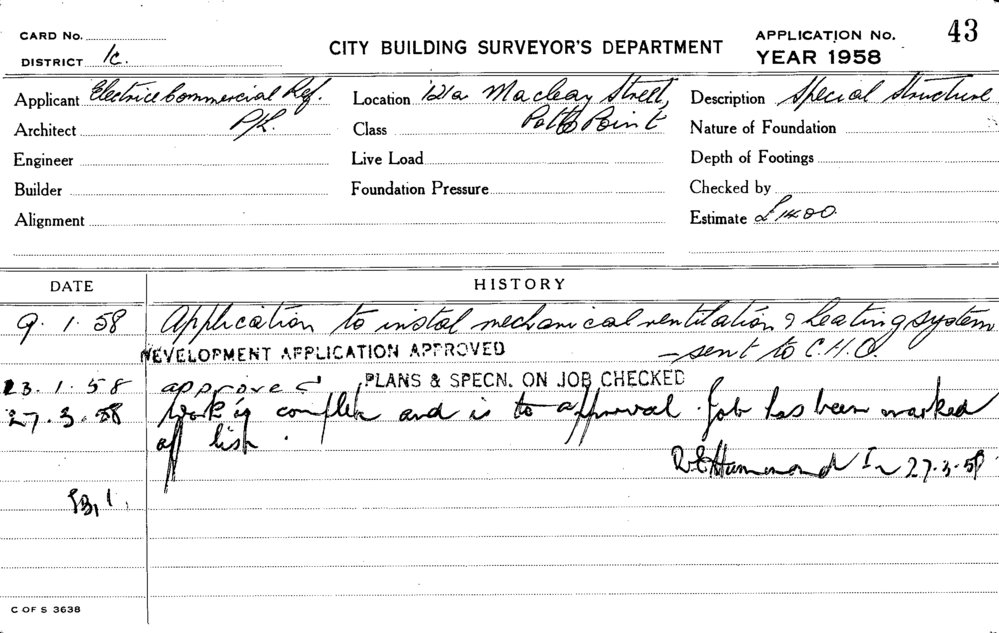 CARD No.
DISTRICT 1c.
CITY BUILDING SURVEYOR'S DEPARTMENT
APPLICATION No. 43
YEAR 1958
Applicant Electrice Commercial Ref. P/L.
Location 121a Macleay Street, Potts Point
Description Special Structure
Architect
Class
Nature of Foundation
Engineer
Live Load
Depth of Footings
Builder
Foundation Pressure
Checked by
Alignment
Estimate £1400
DATE HISTORY
9.1.58 Application to instal mechanical ventilation & heating system
- sent to C.H.O.
DEVELOPMENT APPLICATION APPROVED
PLANS & SPECN. ON JOB CHECKED
23.1.58 approved
27.3.58 Work is complete and is to approval. Job has been marked
off list.
Hammond 27.3.58
C OF S 3638